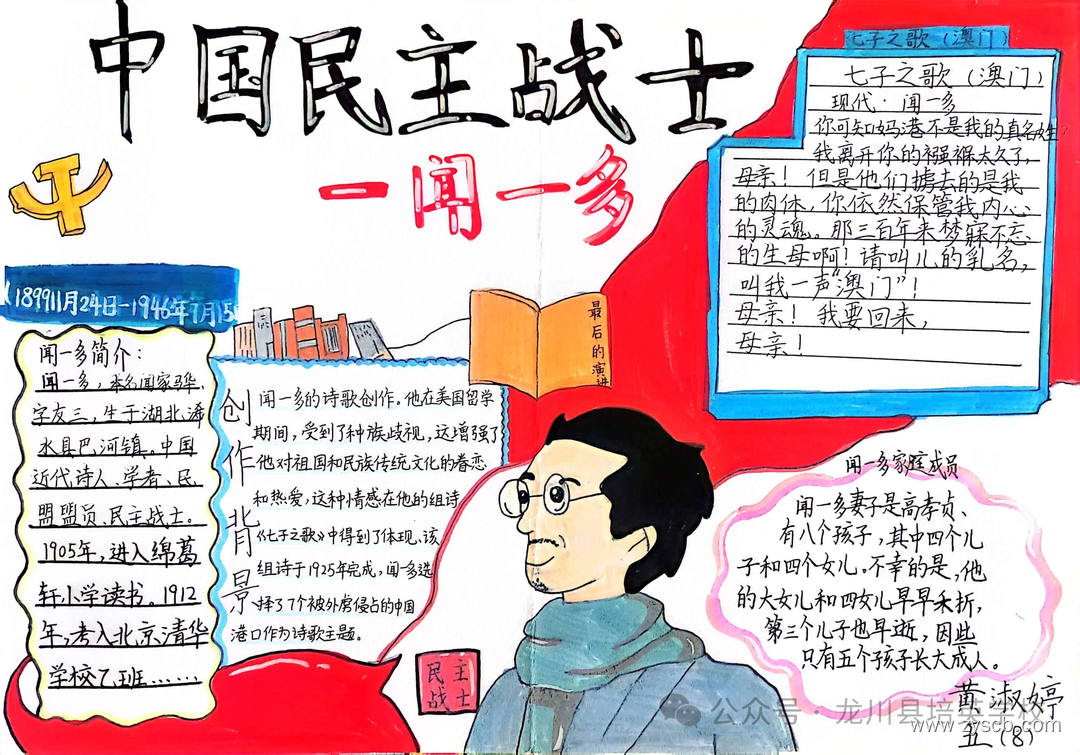 中国民主战士
一闻一多
(1899 11月24日-1946年7月15
闻一多简介：
闻一多，本名闻家骅、
字友三，生于湖北浠
水县巴河镇。中国
近代诗人、学者、民
盟盟员、民主战士。
1905年，进入绵葛
轩小学读书。1912
年，考入北京清华
学校乙班……
创作背景
闻一多的诗歌创作。他在美国留学
期间，受到了种族歧视，这增强了
他对祖国和民族传统文化的眷恋
和热爱，这种情感在他的组诗
《七子之歌》中得到了体现。该
组诗于1925年完成，闻一多选
择了7个被外虏侵占的中国
港口作为诗歌主题。
最后的演讲
七子之歌（澳门）
七子之歌（澳门）
现代·闻一多
你可知妈港不是我的真名姓
我离开你的襁褓太久了，
母亲！但是他们掳去的是我
的肉体，你依然保管我内心
的灵魂。那三百年来梦寐不忘
的生母啊！请叫儿的乳名，
叫我一声“澳门”！
母亲！我要回来，
母亲！
闻一多家庭成员
闻一多妻子是高孝贞、
有八个孩子，其中四个儿
子和四个女儿。不幸的是，他
的大女儿和四女儿早早夭折，
第三个儿子也早逝，因此
只有五个孩子长大成人。
民主
战士
黄淑婷
五（8）
公众号·龙川县培英学校
www.zyscb.com